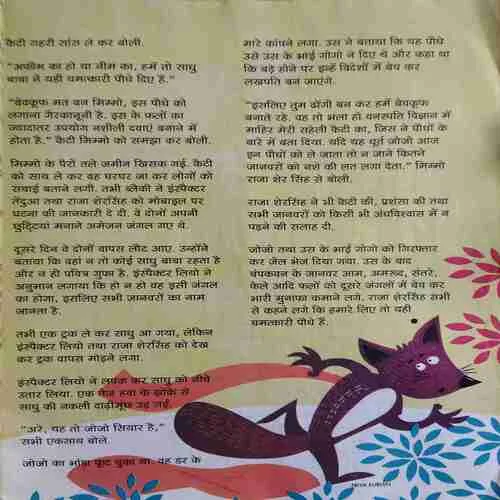 कैटी गहरी सांस ले कर बोली.
"अफीम का हो या नीम का, हमें तो साधु
बाबा ने यही चमत्कारी पौधे दिए हैं."
"बेवकूफ मत बन मिम्मो, इस पौधे को
लगाना गैरकानूनी है. इस के फलों का
ज्यादातर उपयोग नशीली दवाएं बनाने में
होता है." कैटी मिम्मो को समझा कर बोली.
मिम्मो के पैरों तले जमीन खिसक गई. कैटी
को साथ ले कर वह घरघर जा कर लोगों को
सचाई बताने लगी. तभी ब्लैकी ने इंस्पैक्टर
तेंदुआ तथा राजा शेरसिंह को मोबाइल पर
घटना की जानकारी दे दी. वे दोनों अपनी
छुट्टियां मनाने अमेजन जंगल गए थे.
दूसरे दिन वे दोनों वापस लौट आए. उन्होंने
बताया कि वहां न तो कोई साधु बाबा रहता है
और न ही पवित्र गुफा है. इंस्पैक्टर लियो ने
अनुमान लगाया कि हो न हो वह इसी जंगल
का होगा, इसलिए सभी जानवरों का नाम
जानता है.
तभी एक ट्रक ले कर साधु आ गया, लेकिन
इंस्पैक्टर लियो तथा राजा शेरसिंह को देख
कर ट्रक वापस मोड़ने लगा.
इंस्पैक्टर लियो ने लपक कर साधु को नीचे
उतार लिया. एक तेज हवा के झोंके से
साधु की नकली दाढ़ीमूंछ उड़ गई.
"अरे, यह तो जोजो सियार है,"
सभी एकसाथ बोले.
जोजो का भांडा फूट चुका था. वह डर के
मारे कांपने लगा. उस ने बताया कि यह पौधे
उसे उस के भाई गोगो ने दिए थे और कहा था
कि बड़े होने पर इन्हें विदेशों में बेच कर
लखपति बन जाएंगे.
"इसलिए तुम ढोंगी बन कर हमें बेवकूफ
बनाते रहे. वह तो भला हो वनस्पति विज्ञान में
माहिर मेरी सहेली कैटी का, जिस ने पौधों के
बारे में बता दिया. यदि यह धूर्त जोजो आज
इन पौधों को ले जाता तो न जाने कितने
जानवरों को नशे की लत लगा देता." मिम्मो
राजा शेर सिंह से बोली.
राजा शेरसिंह ने भी कैटी की, प्रशंसा की तथा
सभी जानवरों को किसी भी अंधविश्वास में न
पड़ने की सलाह दी.
जोजो तथा उस के भाई गोगो को गिरफ्तार
कर जेल भेज दिया गया. उस के बाद
चंपकवन के जानवर आम, अमरूद, संतरे,
केले आदि फलों को दूसरे जंगलों में बेच कर
भारी मुनाफा कमाने लगे. राजा शेरसिंह सभी
से कहने लगे कि हमारे लिए तो यही
चमत्कारी पौधे हैं.